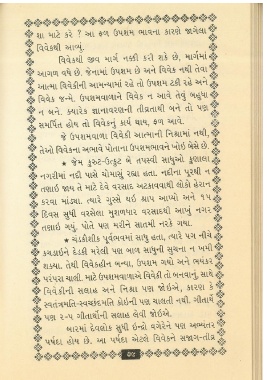 શા માટે કરે ? આ ફળ ઉપશમ ભાવના કારણે જાગેલા
વિવેકથી આવ્યું.
વિવેકથી જીવ માર્ગ નક્કી કરી શકે છે, માર્ગમાં
આગળ વધે છે. જેનામાં ઉપશમ છે અને વિવેક નથી તેવા
આત્મા વિવેકીની આમન્યામાં રહે તો ઉપશમ ટકી રહે અને
વિવેક જન્મે. ઉપશમવાળાને વિવેક ન આવે તેવું બહુધા
ન બને. ક્યારેક જ્ઞાનાવરણની તીવ્રતાથી બને તો પણ
સમર્પિત હોય તો વિવેકનું કાર્ય થાય, ફળ આવે.
જે ઉપશમવાળા વિવેકી આત્માની નિશ્રામાં નથી,
તેઓ વિવેકના અભાવે પોતાના ઉપશમભાવને ખોઈ બેસે છે.
★ જેમ કુરુટ-ઉત્કુરુટ બે તપસ્વી સાધુઓ કુણાલા
નગરીમાં નદી પાસે ચોમાસું રહ્યા હતા. નદીના પૂરથી ન
તણાઈ જાય તે માટે દેવે વરસાદ અટકાવવાથી લોકો હેરાન
કરવા માંડ્યા. ત્યારે ગુસ્સે થઇ શ્રાપ આપ્યો અને ૧૫
દિવસ સુધી વરસેલા મુશળધાર વરસાદથી આખું નગર
તણાઈ ગયું, પોતે પણ મરીને સાતમી નરકે ગયા.
★ ચંડકૌશીક પૂર્વભવમાં સાધુ હતા, ત્યારે પગ નીચે
કચડાઇને દેડકી મરેલી પણ બાળ સાધુની સુચના ન ખમી
શક્યા. તેથી વિવેકહીન બન્યા, ઉપશમ ગયો અને ભયંકર
પરંપરા ચાલી. માટે ઉપશમવાળાએ વિવેકી તો બનવાનું, સાથે
વિવેકીની સલાહ અને નિશ્રા પણ જોઈએ, કારણ કે
સ્વતંત્રમતિ-સ્વચ્છંદમતિ કોઈની પણ ચાલતી નથી. ગીતાર્થે
પણ ૨-૫ ગીતાર્થોની સલાહ લેવી જોઈએ.
બારમાં દેવલોક સુધી ઇન્દ્રો વગેરેને પણ અભ્યંતર
પર્ષદા હોય છે. આ પર્ષદા એટલે વિવેકને સજાગ-તીવ્ર